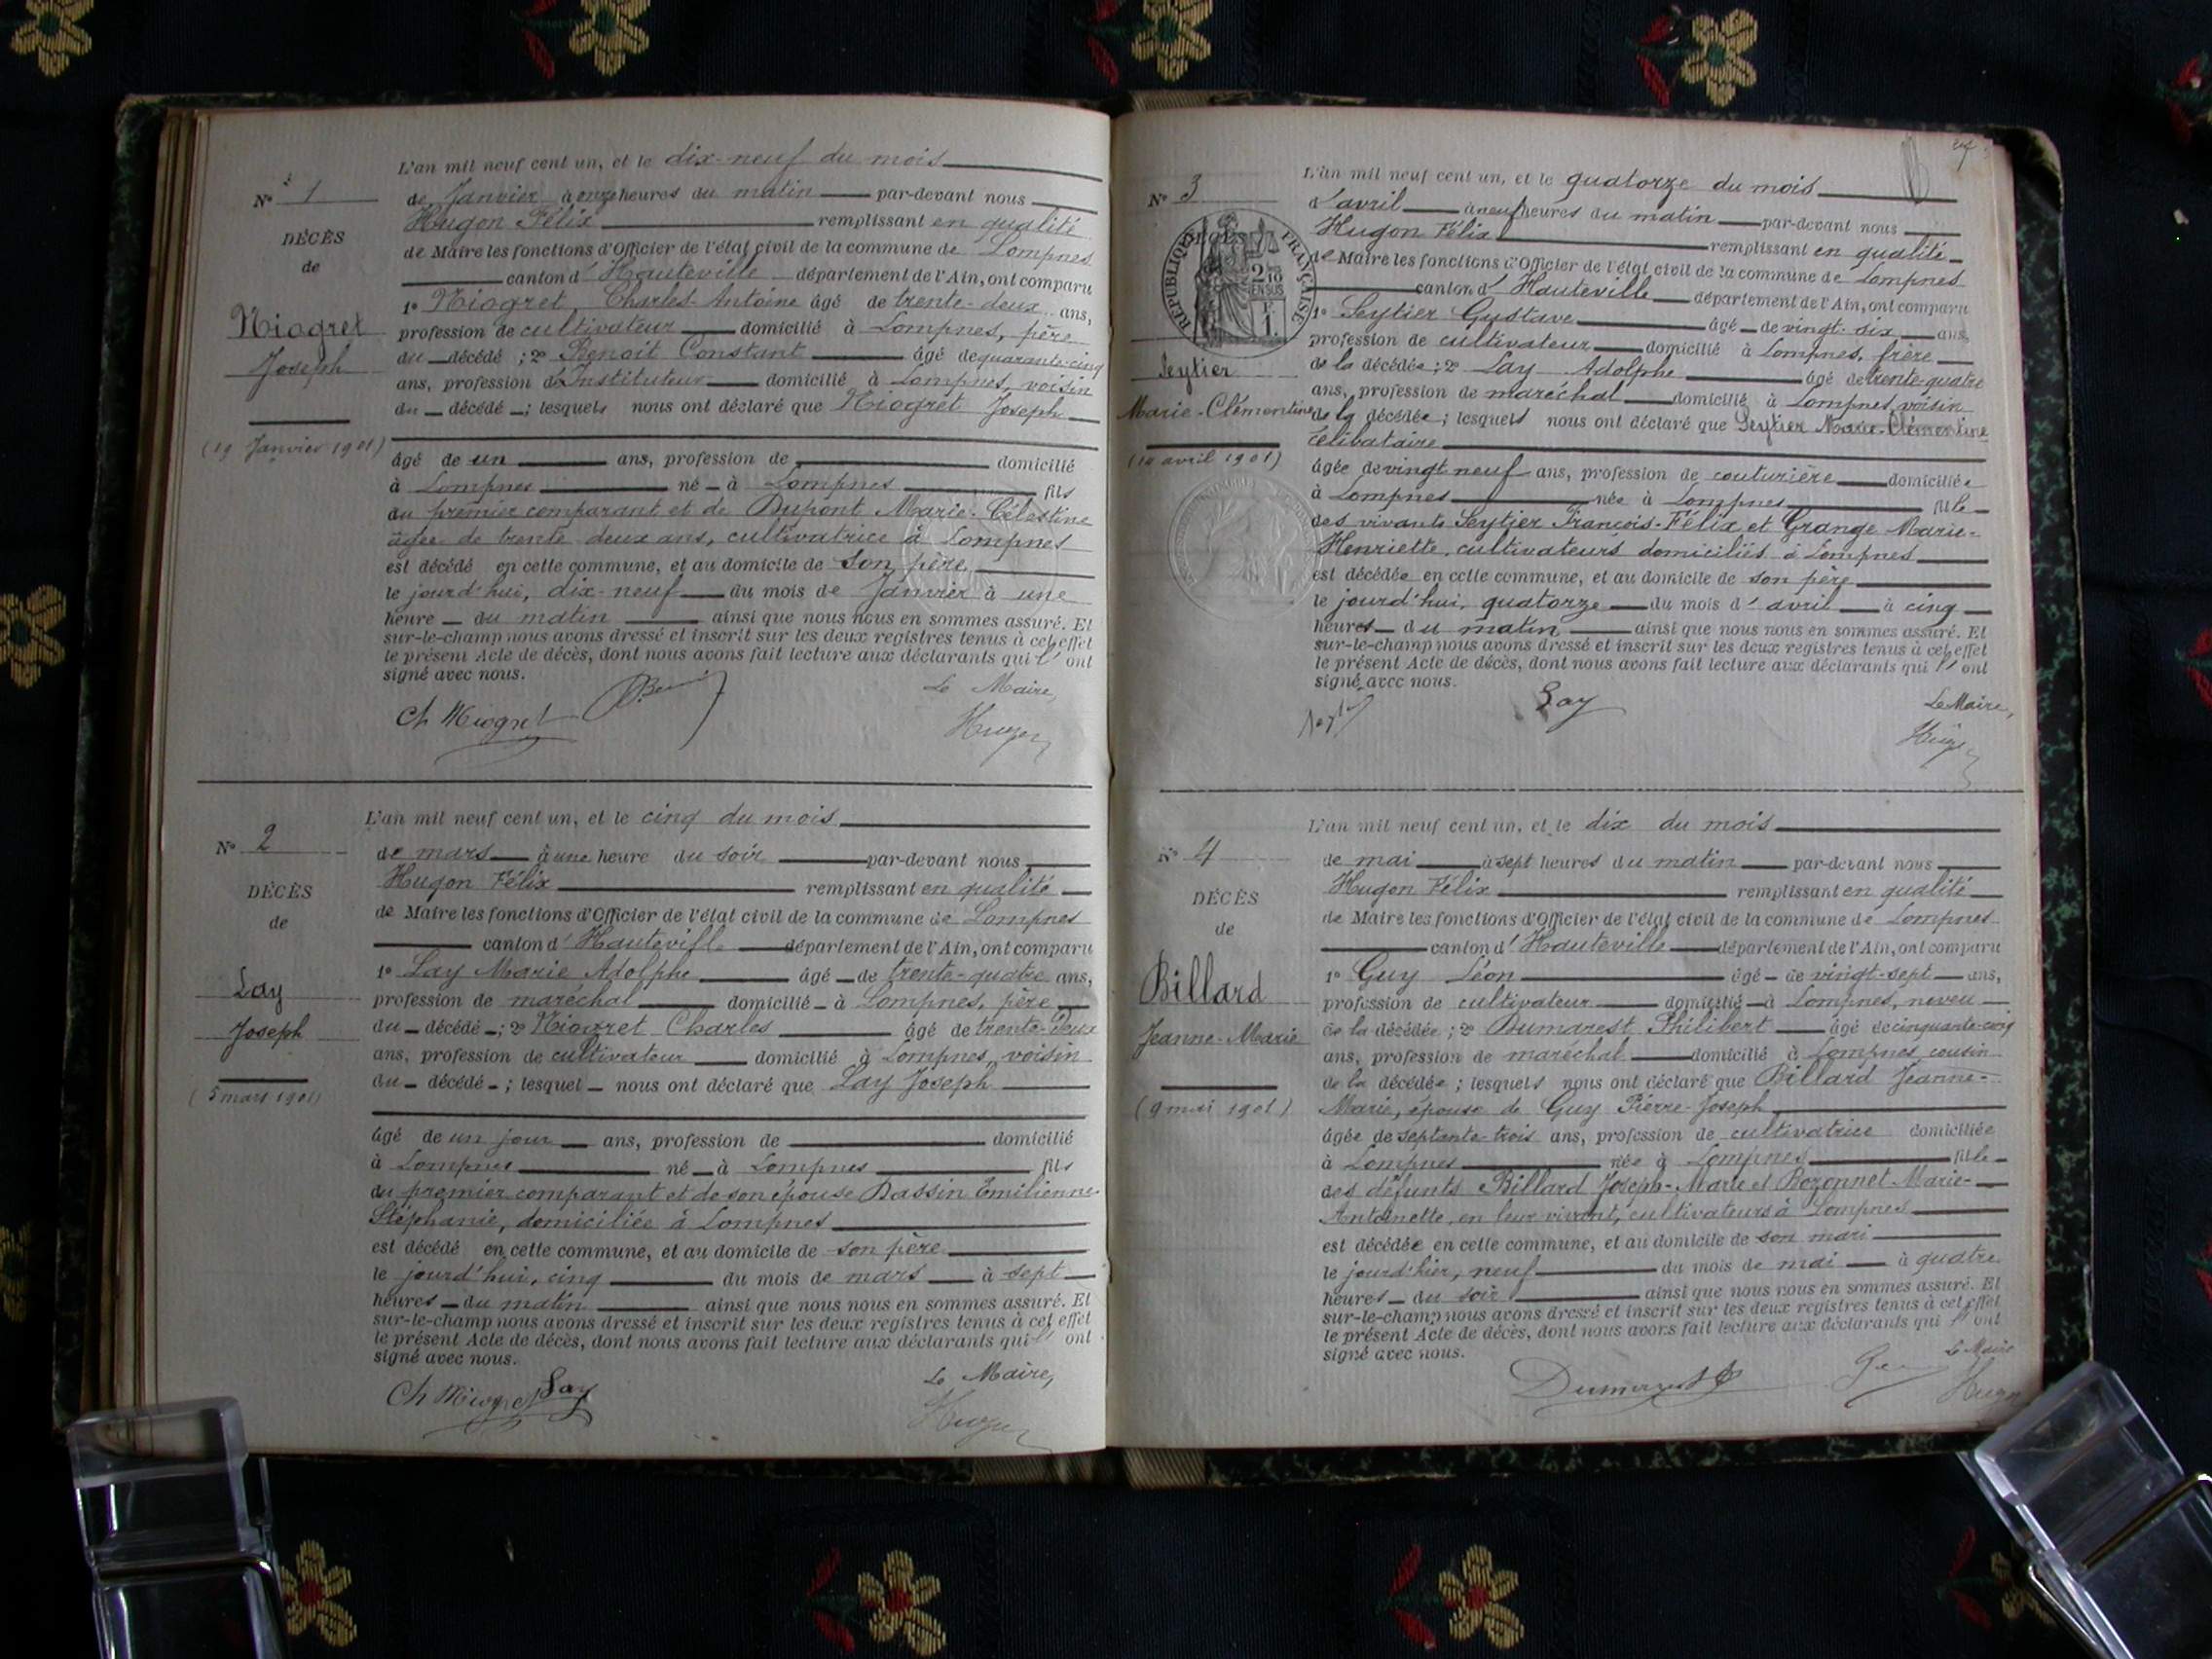 N° 1
DÉCÈS
de
Niogret
Joseph
(19 Janvier 1901)
L'an mil neuf cent un, et le dix-neuf du mois
de Janvier à onze heures du matin par-devant nous
Hugon Félix remplissant en qualité
de Maire les fonctions d'Officier de l'état civil de la commune de Lompnes
canton d'Hauteville département de l'Ain, ont comparu
1° Niogret, Charles-Antoine âgé de trente-deux ans,
profession de cultivateur domicilié à Lompnes, père
du décédé ; 2° Benoit Constant âgé de quarante-cinq
ans, profession d'Instituteur domicilié à Lompnes, voisin
du décédé ; lesquels nous ont déclaré que Niogret Joseph
âgé de un ans, profession de domicilié
à Lompnes né à Lompnes fils
du premier comparant et de Dupont Marie-Célestine
âgée de trente deux ans, cultivatrice à Lompnes
est décédé en cette commune, et au domicile de son père
le jourd'hui, dix-neuf du mois de Janvier à une
heure du matin ainsi que nous nous en sommes assuré. Et
sur-le-champ nous avons dressé et inscrit sur les deux registres tenus à cet effet
le présent Acte de décès, dont nous avons fait lecture aux déclarants qui l'ont
signé avec nous.
Le Maire,
Ch Niogret
Hugon
N° 2
DÉCÈS
de
Lay
Joseph
(5 mars 1901)
L'an mil neuf cent un, et le cinq du mois
de mars à une heure du soir par-devant nous
Hugon Félix remplissant en qualité
de Maire les fonctions d'Officier de l'état civil de la commune de Lompnes
canton d'Hauteville département de l'Ain, ont comparu
1° Lay Marie Adolphe âgé de trente-quatre ans,
profession de maréchal domicilié à Lompnes, père
du décédé ; 2° Niogret Charles âgé de trente-deux
ans, profession de cultivateur domicilié à Lompnes, voisin
du décédé ; lesquel nous ont déclaré que Lay Joseph
âgé de un jour ans, profession de domicilié
à Lompnes né à Lompnes fils
du premier comparant et de son épouse Dassin Emilienne
Stéphanie, domiciliée à Lompnes
est décédé en cette commune, et au domicile de son père
le jourd'hui, cinq du mois de mars à sept
heures du matin ainsi que nous nous en sommes assuré. Et
sur-le-champ nous avons dressé et inscrit sur les deux registres tenus à cet effet
le présent Acte de décès, dont nous avons fait lecture aux déclarants qui l'ont
signé avec nous.
Le Maire,
Ch Niogret Lay
Hugon
N° 3
RÉPUBLIQUE FRANÇAISE
Seytier
Marie-Clémentine
L'an mil neuf cent un, et le quatorze du mois
d'avril à neuf heures du matin par-devant nous
Hugon Félix remplissant en qualité
de Maire les fonctions d'Officier de l'état civil de la commune de Lompnes
canton d'Hauteville département de l'Ain, ont comparu
1° Seytier Gustave âgé de vingt-six ans,
profession de cultivateur domicilié à Lompnes, frère
de la décédée ; 2° Lay Adolphe âgé de trente-quatre
ans, profession de maréchal domicilié à Lompnes, voisin
de la décédée ; lesquels nous ont déclaré que Seytier Marie-Clémentine
célibataire
âgée de vingt neuf ans, profession de couturière domiciliée
à Lompnes née à Lompnes fille
des vivants Seytier François-Félix et Grange Marie-
Henriette, cultivateurs domiciliés à Lompnes
est décédée en cette commune, et au domicile de son père
le jourd'hui, quatorze du mois d'avril à cinq
heures du matin ainsi que nous nous en sommes assuré. Et
sur-le-champ nous avons dressé et inscrit sur les deux registres tenus à cet effet
le présent Acte de décès, dont nous avons fait lecture aux déclarants qui l'ont
signé avec nous.
Lay
Le Maire,
Hugon
N° 4
DÉCÈS
de
Billard
Jeanne-Marie
(9 mai 1901)
L'an mil neuf cent un, et le dix du mois
de mai à sept heures du matin par-devant nous
Hugon Félix remplissant en qualité
de Maire les fonctions d'Officier de l'état civil de la commune de Lompnes
canton d'Hauteville département de l'Ain, ont comparu
1° Guy Léon âgé de vingt-sept ans,
profession de cultivateur domicilié à Lompnes, neveu
de la décédée ; 2° Dumarest Philibert âgé de cinquante-cinq
ans, profession de maréchal domicilié à Lompnes cousin
de la décédée ; lesquels nous ont déclaré que Billard Jeanne-
Marie, épouse de Guy Pierre-Joseph
âgée de septante-trois ans, profession de cultivatrice domiciliée
à Lompnes née à Lompnes fille
des défunts Billard Joseph-Marie et Bozonnet Marie-
Antoinette, en leur vivant, cultivateurs à Lompnes
est décédée en cette commune, et au domicile de son mari
le jourd'hier, neuf du mois de mai à quatre
heures du soir ainsi que nous nous en sommes assuré. Et
sur-le-champ nous avons dressé et inscrit sur les deux registres tenus à cet effet
le présent Acte de décès, dont nous avons fait lecture aux déclarants qui l'ont
signé avec nous.
Le Maire
Dumarest
Hugon